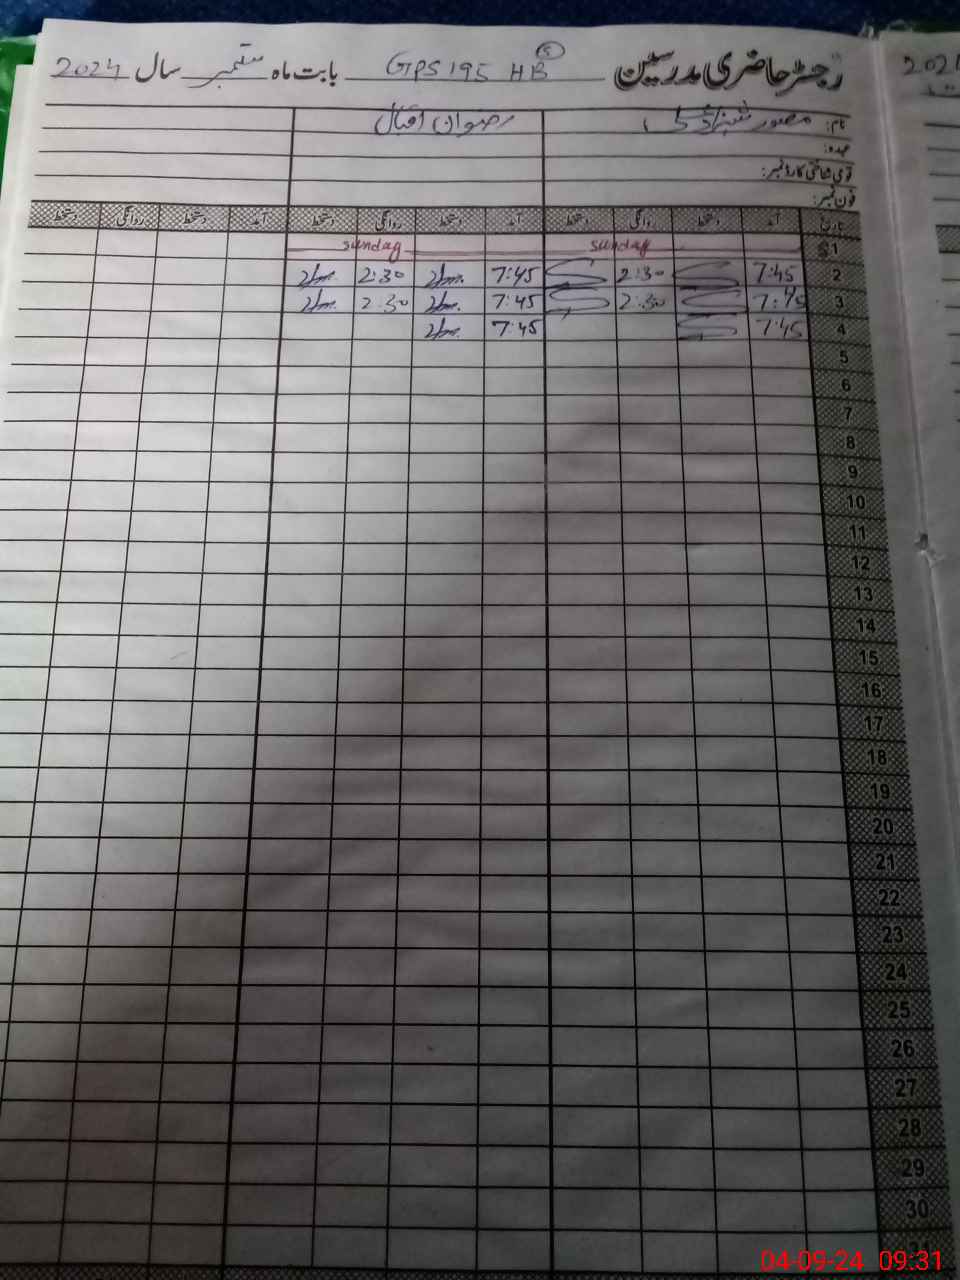 رجسٹر حاضری مدرسین GPS 195 HB بابت ماہ ستمبر سال 2024
202
نام: منصور شہزاد رضوان اقبال
عہدہ:
قومی شناختی کارڈ نمبر:
فون نمبر:
تاریخ آمد دستخط روانگی دستخط آمد دستخط روانگی دستخط آمد دستخط روانگی دستخط
1 sunday sunday
2 7:45 2:30 7:45 2:30
3 7:45 2:30 7:45 2:30
4 7:45 7:45
5
6
7
8
9
10
11
12
13
14
15
16
17
18
19
20
21
22
23
24
25
26
27
28
29
30
31
04-09-24 09:31